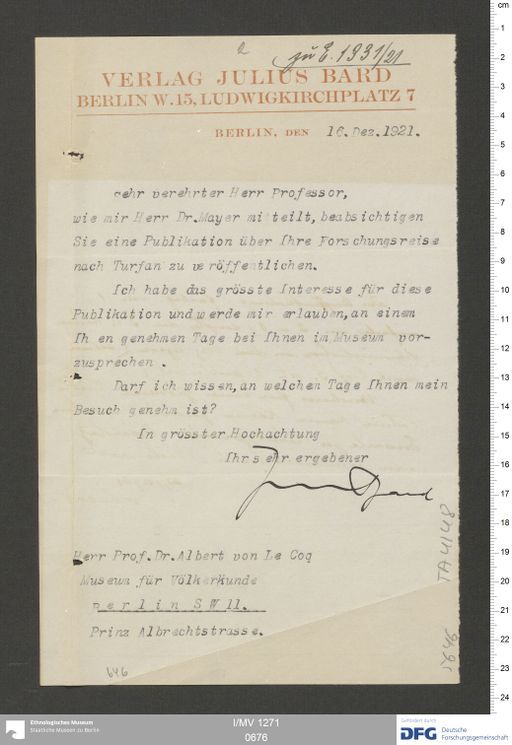 zu E. 1931/21
VERLAG JULIUS BARD
BERLIN W. 15, LUDWIGKIRCHPLATZ 7
BERLIN, DEN 16. Dez. 1921.
Sehr verehrter Herr Professor,
wie mir Herr Dr.Mayer mitteilt, beabsichtigen
Sie eine Publikation über Ihre Forschungsreise
nach Turfan zu veröffentlichen.
Ich habe das grösste Interesse für diese
Publikation und werde mir erlauben, an einem
Ihnen genehmen Tage bei Ihnen im Museum vor-
zusprechen .
Darf ich wissen, an welchen Tage Ihnen mein
Besuch genehm ist?
In grösster Hochachtung
Ihr sehr ergebener
Herr Prof. Dr. Albert von Le Coq
Museum für Völkerkunde
B e r l i n S W 11.
Prinz Albrechtstrasse.
TA 4148
646
Ethnologisches Museum
Staatliche Museen zu Berlin
I/MV 1271
0676
Gefördert durch
DFG Deutsche
Forschungsgemeinschaft
cm
1
2
3
4
5
6
7
8
9
10
11
12
13
14
15
16
17
18
19
20
21
22
23
24